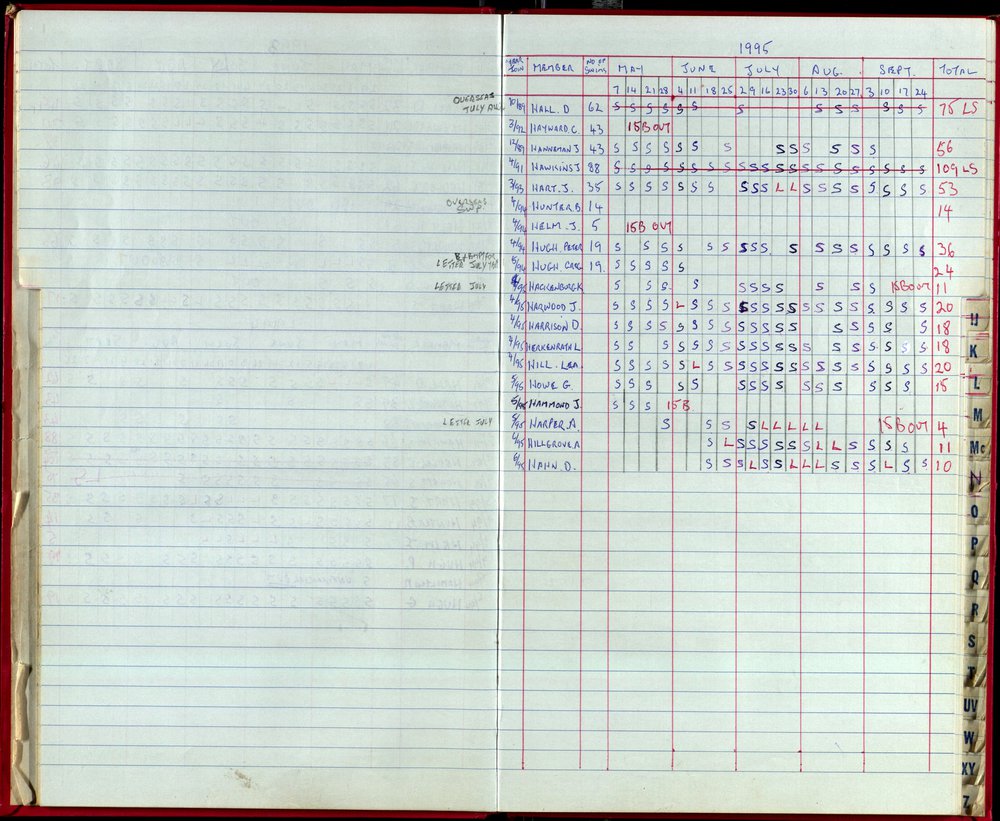 1995
YEAR JOIN MEMBER NO OF SWIMS MAY JUNE JULY AUG. SEPT. TOTAL
7 14 21 28 4 11 18 25 2 9 16 23 30 6 13 20 27 3 10 17 24
OVERSEAS JULY AUG 10/89 HALL. D 62 S S S S S S S S S S S S S 75 LS
3/92 HAYWARD C. 43 15B OUT
12/89 HANNEMAN J 43 S S S S S S S S S S S S S 56
4/91 HAWKINS J. 88 S S S S S S S S S S S S S S S S S S S S S 109 LS
3/93 HART. J. 35 S S S S S S S S S S L L S S S S S S S S 53
OVERSEAS SWP. 4/94 HUNTER B. 14 14
4/94 HELM. J. 5 15B OUT
4/94 HUGH PETER 19 S S S S S S S S S S S S S S S S S S 36
EXEMPT FOR LETTER JULY 5/94 HUGH GREG 19. S S S S S 24
LETTER JULY /95 HACKENBURG K S S S S S S S S S S S 15B OUT 11
4/95 HARWOOD J. S S S S L S S S S S S S S S S S S S S S S 20
4/95 HARRISON D. S S S S S S S S S S S S S S S S S S 18
4/95 HERKENRATH L S S S S S S S S S S S S S S S S S S S 18
4/95 HILL. LEA. S S S S S L S S S S S S S S S S S S S S S 20
5/95 HOWE G. S S S S S S S S S S S S S S S 15
5/95 HAMMOND J. S S S 15B
LETTER JULY 5/95 HARPER. A S S S S L L L L L 15B OUT 4
6/95 HILLGROVE A S L S S S S S S L L S S S S 11
6/95 HAHN. D. S S S L S S L L L S S S L S S 10
H
K
L
M
Mc
N
O
P
Q
R
S
T
UV
W
XY
Z